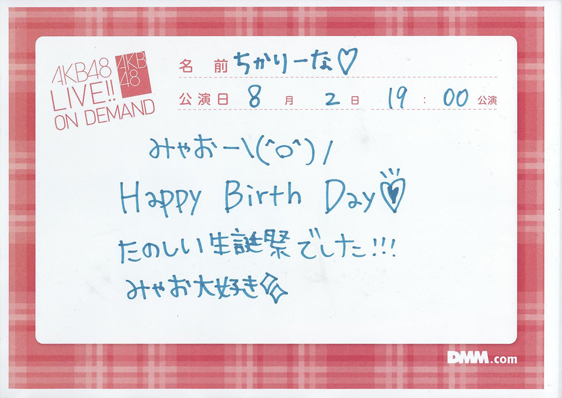 AKB48
LIVE!!
ON DEMAND
AKB
48
名前 ちかりーな♡
公演日 8月 2日 19:00 公演
みゃおー\(^o^)/
Happy Birth Day♡
たのしい生誕祭でした!!!
みゃお大好き
DMM.com